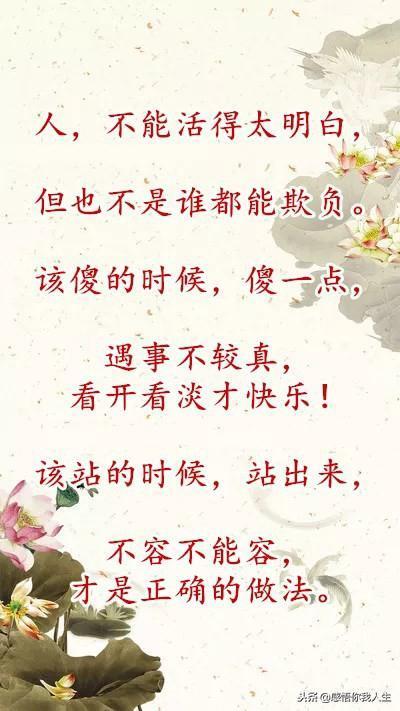 人，不能活得太明白，
但也不是谁都能欺负。
该傻的时候，傻一点，
遇事不较真，
看开看淡才快乐！
该站的时候，站出来，
不容不能容，
才是正确的做法。
头条 @感悟你我人生